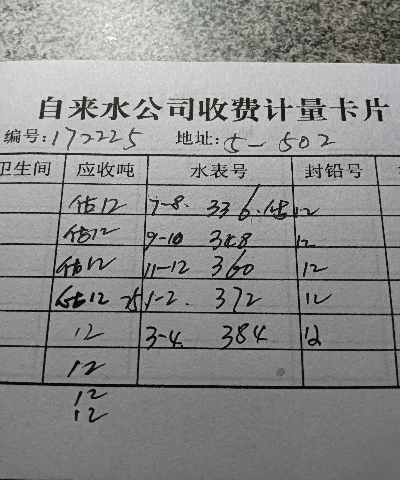 自来水公司收费计量卡片
编号:172225 地址:5-502
卫生间 应收吨 水表号 封铅号
估12 7-8. 336.估12
估12 9-10 348 12
估12 11-12 360 12
估12 1-2. 372 12
12 3-4. 384 12
12
12
12